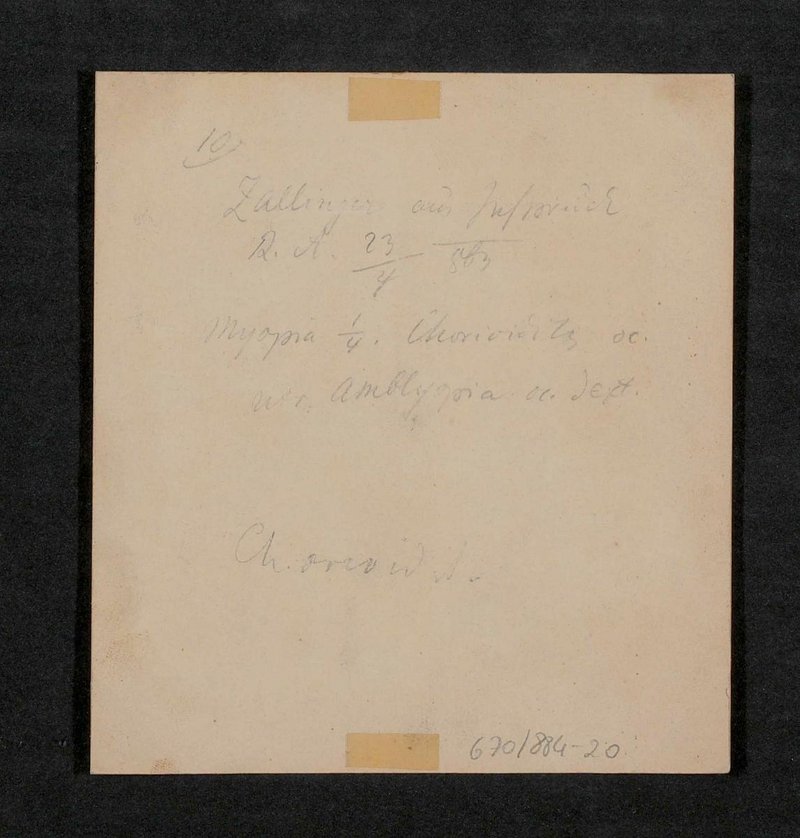 10)
Zallinger aus Insbruck
R. A. 23/4 863
Myopia 1/4. Chorioidit. oc.
utr. Amblyopia oc. dext.
Chorioidit.
670/884-20